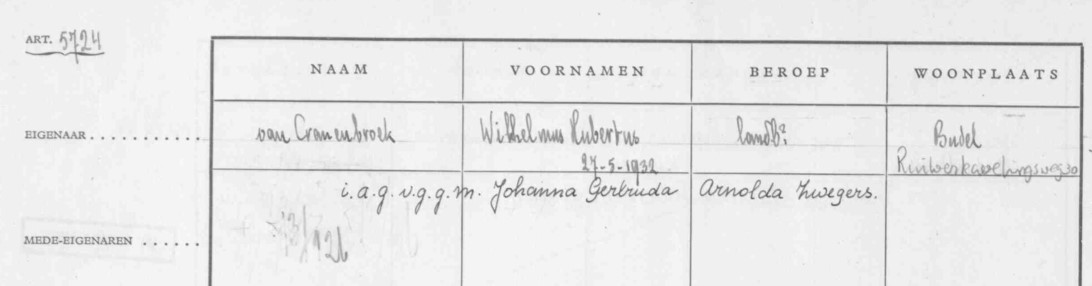 ART. 5724
NAAM VOORNAMEN BEROEP WOONPLAATS
EIGENAAR . . . . . . . . . . . van Cranenbroek Wilhelmus Hubertus landbr Budel
27-5-1932 Ruilverkavelingsweg 30
i.a.g.v.g.g.m. Johanna Gertruda Arnolda Zwegers.
MEDE-EIGENAREN . . . . . .